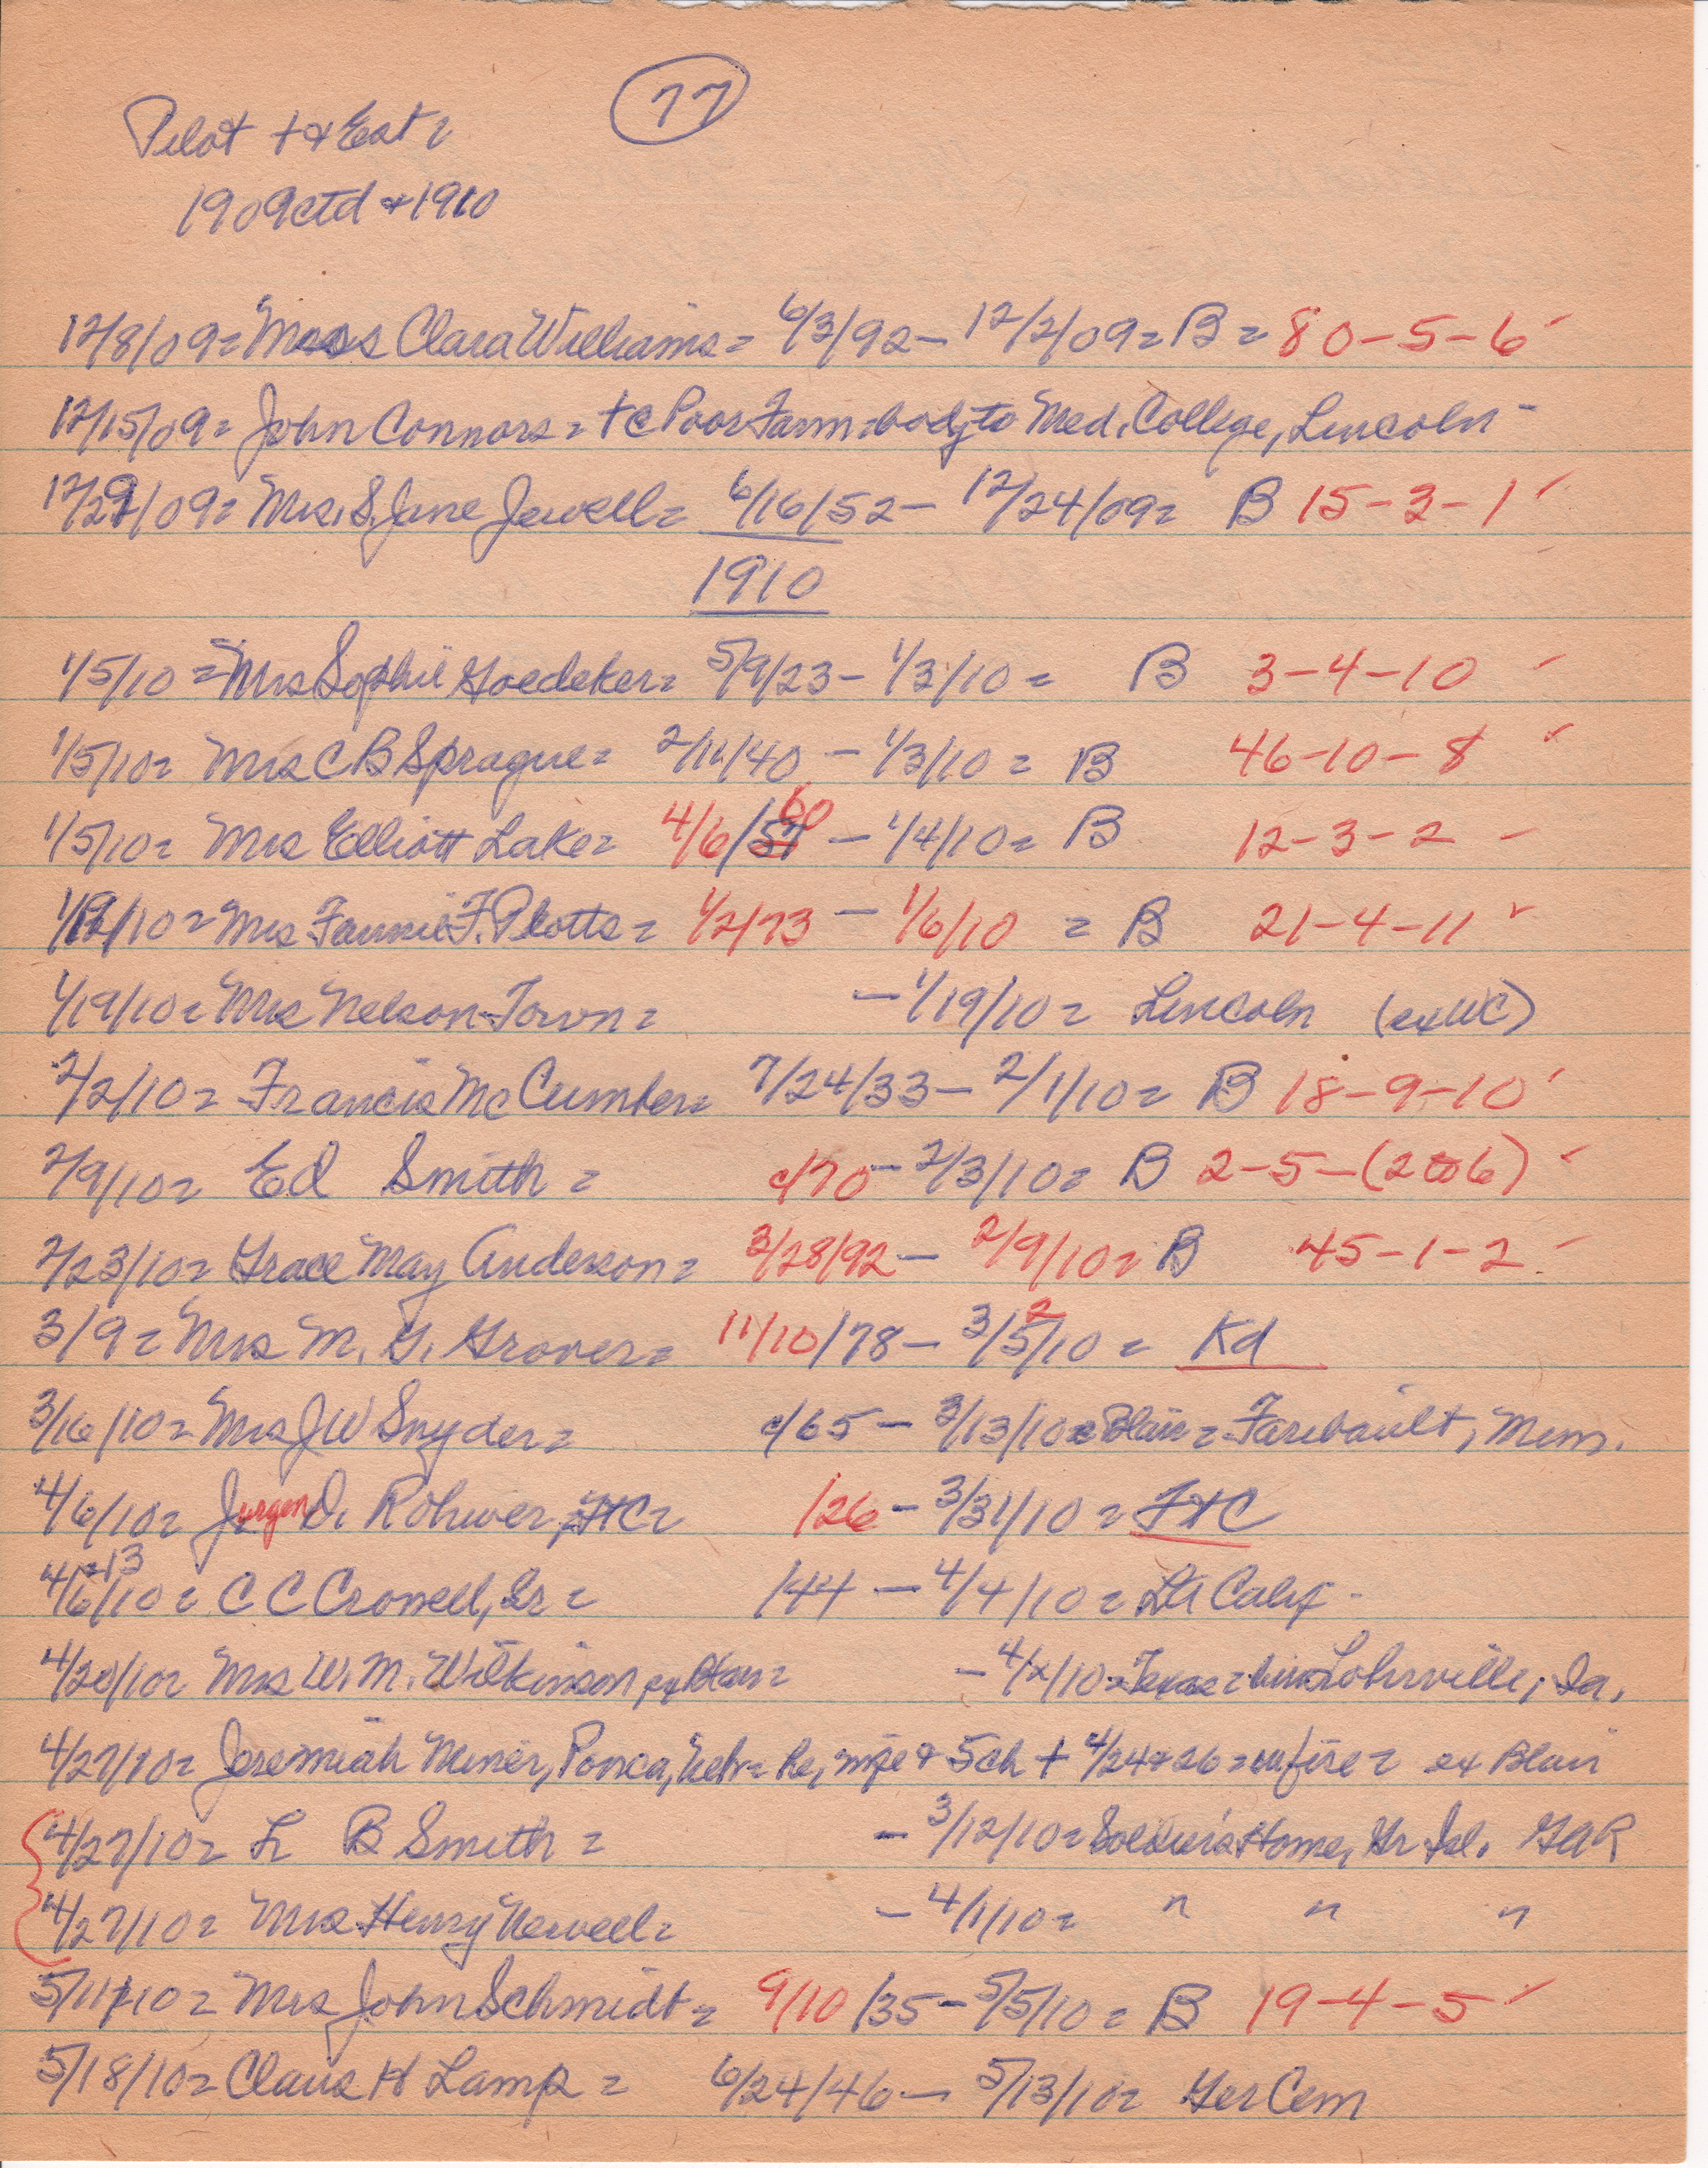 77
Pilot + Est =
1909 ctd + 1910
12/8/09 = Miss Clara Williams = 6/3/92 - 12/2/09 = B = 80-5-6
12/15/09 = John Connors = + C Poor Farm = body to Med. College, Lincoln -
12/29/09 = Mrs. S. Jane Jewell = 6/16/52 - 12/24/09 = B 15-3-1
1910
1/5/10 = Mrs Sophie Goedeker = 5/9/23 - 1/3/10 = B 3-4-10
1/5/10 = Mrs C B Sprague = 2/11/40 - 1/3/10 = B 46-10-8
1/5/10 = Mrs Elliott Lake = 4/6/60 - 1/4/10 = B 12-3-2
1/12/10 = Mrs Fannie F. Plotts = 1/2/73 - 1/6/10 = B 21-4-11
1/19/10 = Mrs Nelson Town = - 1/19/10 = Lincoln (exWC)
2/2/10 = Francis McCumber = 7/24/33 - 2/1/10 = B 18-9-10
2/9/10 = Ed Smith = c/70 - 2/3/10 = B 2-5-(2 to 6)
2/23/10 = Grace May Anderson = 3/28/92 - 2/9/10 = B 45-1-2
3/9 = Mrs M. G. Grover = 11/10/78 - 3/5/10 = Kd
2
3/16/10 = Mrs J W Snyder = c/65 - 3/13/10 = Blair = Faribault, Minn.
4/6/10 = Jurgen D. Rohwer, FtC = /26 - 3/31/10 = FtC
4/6+13/10 = C C Crowell, Sr = /44 - 4/4/10 = LA Calif -
4/20/10 = Mrs W. M. Wilkinson, ex Blair = - 4/2/10 = Texas = bur Lohrville, Ia.
4/27/10 = Jeremiah Miner, Ponca, Nebr = he, wife + 5 ch + 4/24+26 = in fire = ex Blair
4/27/10 = L B Smith = - 3/12/10 = Soldier's Home, Gr Isl. GAR
4/27/10 = Mrs Henry Newell = - 4/1/10 = " " "
5/11/10 = Mrs John Schmidt = 9/10/35 - 5/5/10 = B 19-4-5
5/18/10 = Claus H Lamp = 6/24/46 - 5/13/10 = Ger Cem